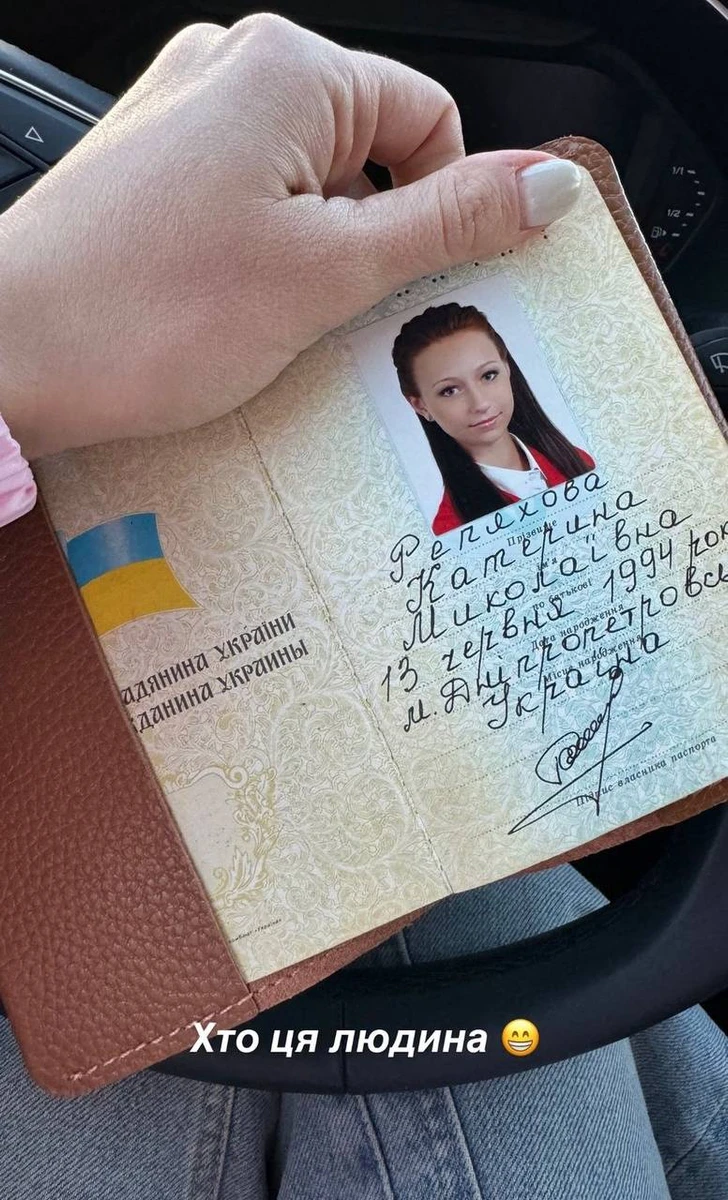 1/1
1/2
АДЯНИНА УКРАЇНИ
ДАНИНА УКРАИНЫ
Репяхова
Прізвище
Катерина
ім'я
Миколаївна
по батькові
13 червня 1994 рок
Дата народження
м. Дніпропетровськ
Місце народження
Україна
Підпис власника паспорта
Хто ця людина 😁